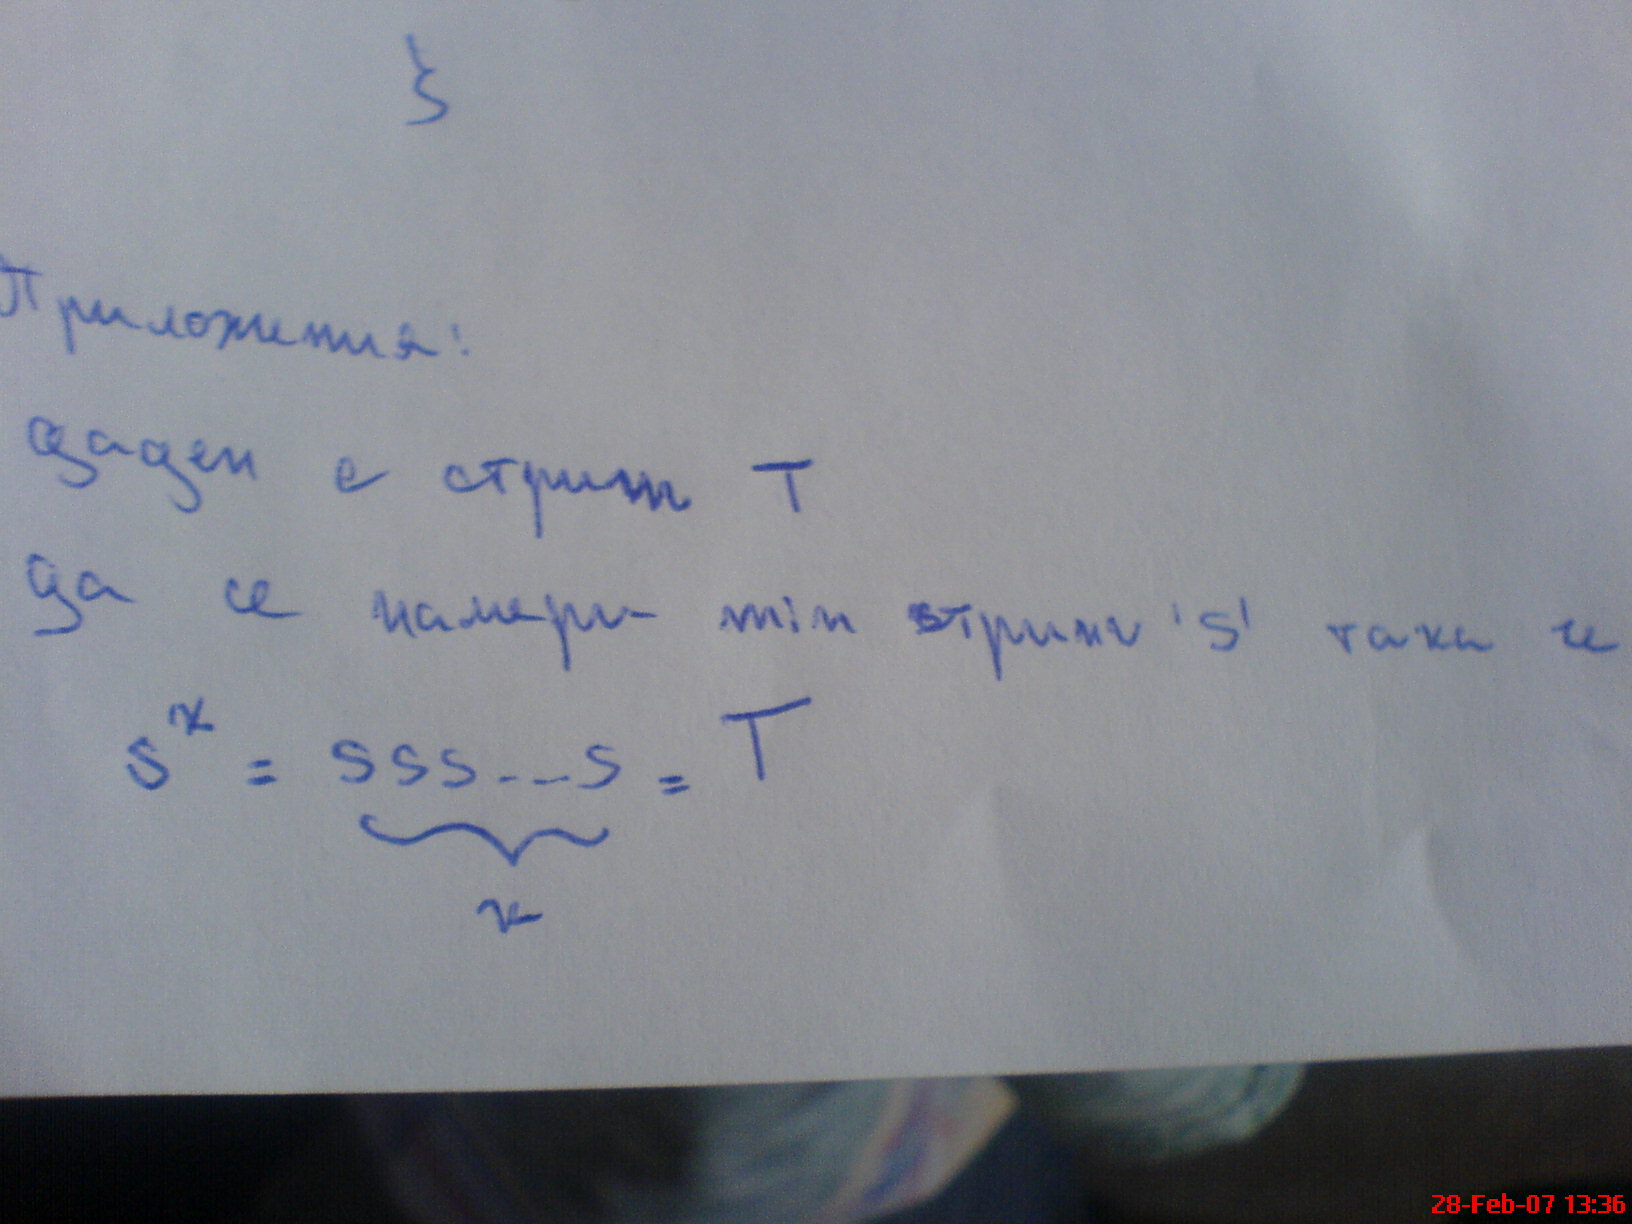 }
Приложения:
даден е стринг T
да се намери min стринг 's' така че
s^x = sss...s = T
x
28-Feb-07 13:36